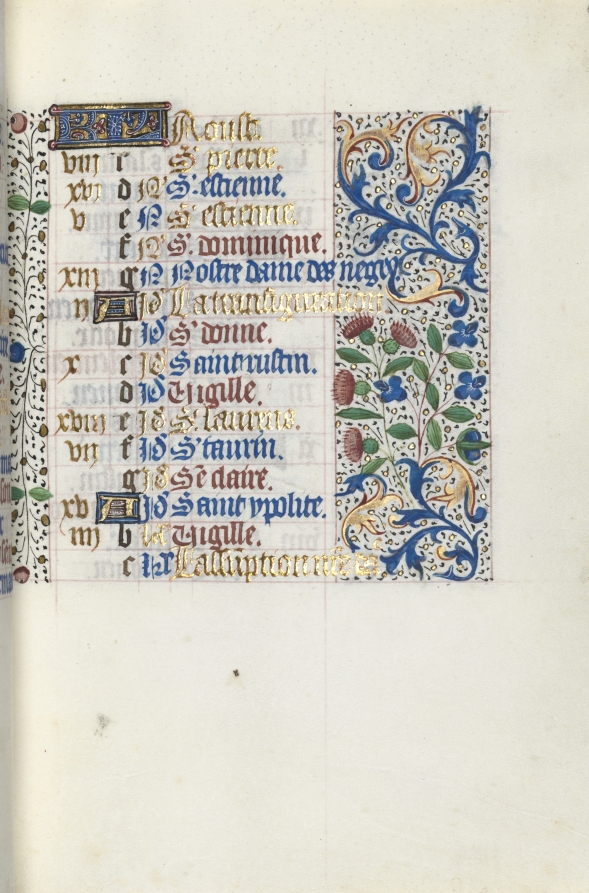 KL Aoust.
viii c S' pierre.
xvi d N' S. estienne.
v e N S' estienne.
f N' S' dominique.
xiii g N Nostre dame des neges
ii A Id La transfiguration
b Id S' donne.
x c Id Saint rustin.
d Id Vigille.
xviii e Id S' laurens.
vii f Id S' taurin.
g Id Se claire.
xv A Id Saint ypolite.
iiii b Id Vigille.
c kl L'assumption